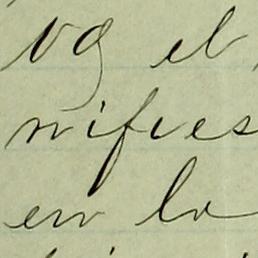 og el
nifies
en la